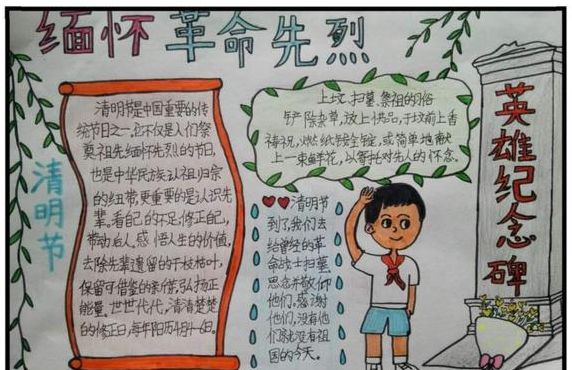 缅怀革命先烈
清明节
清明节是中国重要的传
统节日之一,它不仅是人们祭
奠祖先、缅怀先烈的节日,
也是中华民族认祖归宗
的纽带,更重要的是认识先
辈。看自己的不足,修正自己,
带动后人。感悟人生的价值,
去除先辈遗留的干枝枯叶,
保留可借鉴的亲情,弘扬正
能量。世世代代,清清楚楚
的修正日,每年阳历4月4-6日。
上坟、扫墓、祭祖的习俗
铲除杂草,放上供品,于坟前上香
祷祝,燃纸钱金锭,或简单地献
上一束鲜花,以寄托对先人的怀念。
清明节
到了,我们去
给曾经的革
命战士扫墓,
思念并敬仰
他们。感谢
他们,没有他
们就没有祖
国的今天。
英雄纪念碑